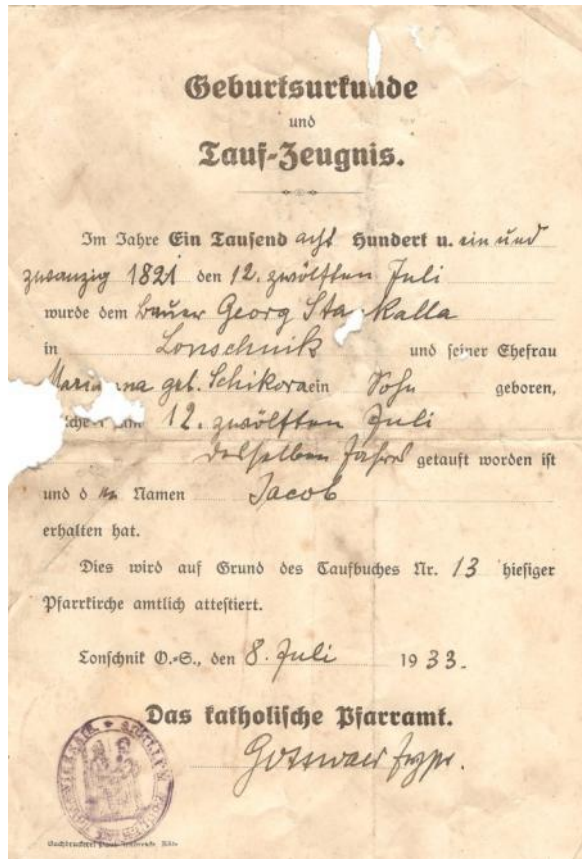 Geburtsurkunde
und
Tauf-Zeugnis.
Im Jahre Ein Tausend acht Hundert u. ein und
zwanzig 1821 den 12. zwölften Juli
wurde dem Bauer Georg Sta kalla
in Lonschnik und seiner Ehefrau
Marianna geb. Schikora ein Sohn geboren,
12. zwölften Juli
desselben Jahres getauft worden ist
und den Namen Jacob
erhalten hat.
Dies wird auf Grund des Taufbuches Nr. 13 hiesiger
Pfarrkirche amtlich attestiert.
Lonschnik O.-S., den 8. Juli 1933.
Das katholische Pfarramt.
Buchdruckerei